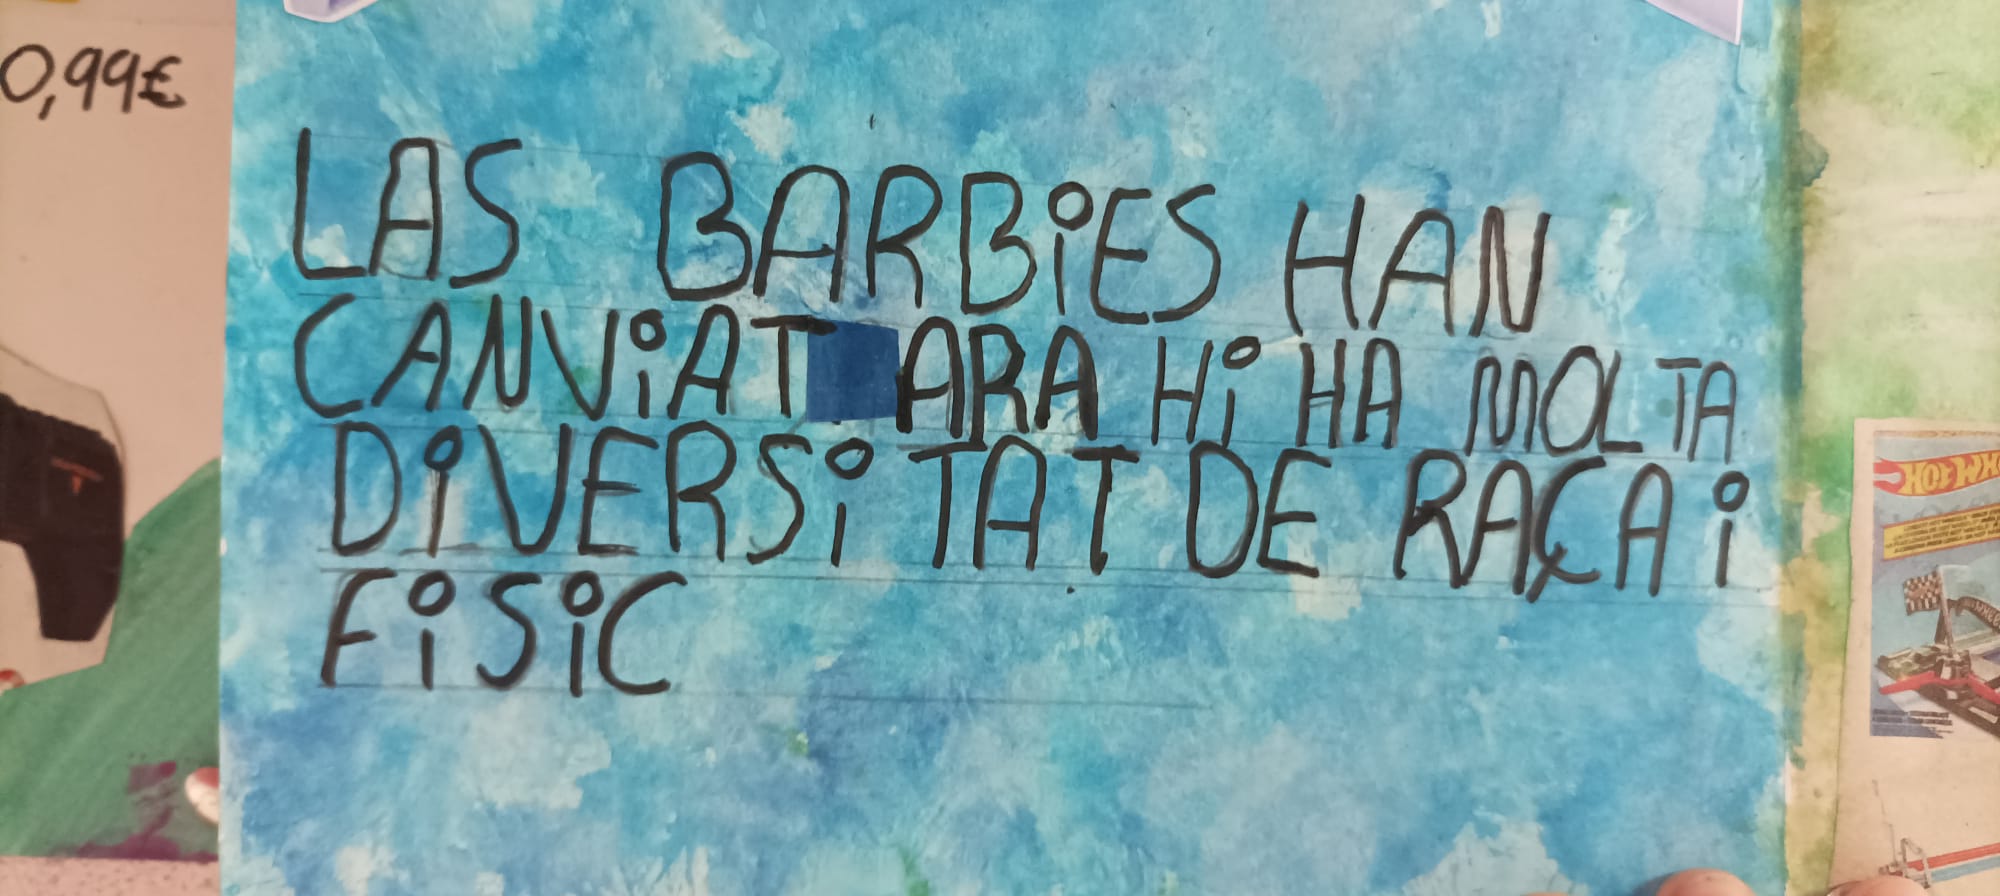 0,99€
LAS BARBiES HAN
CANViAT ARA Hi HA MOLTA
DiVERSiTAT DE RAÇA i
FiSiC
HOT WHE